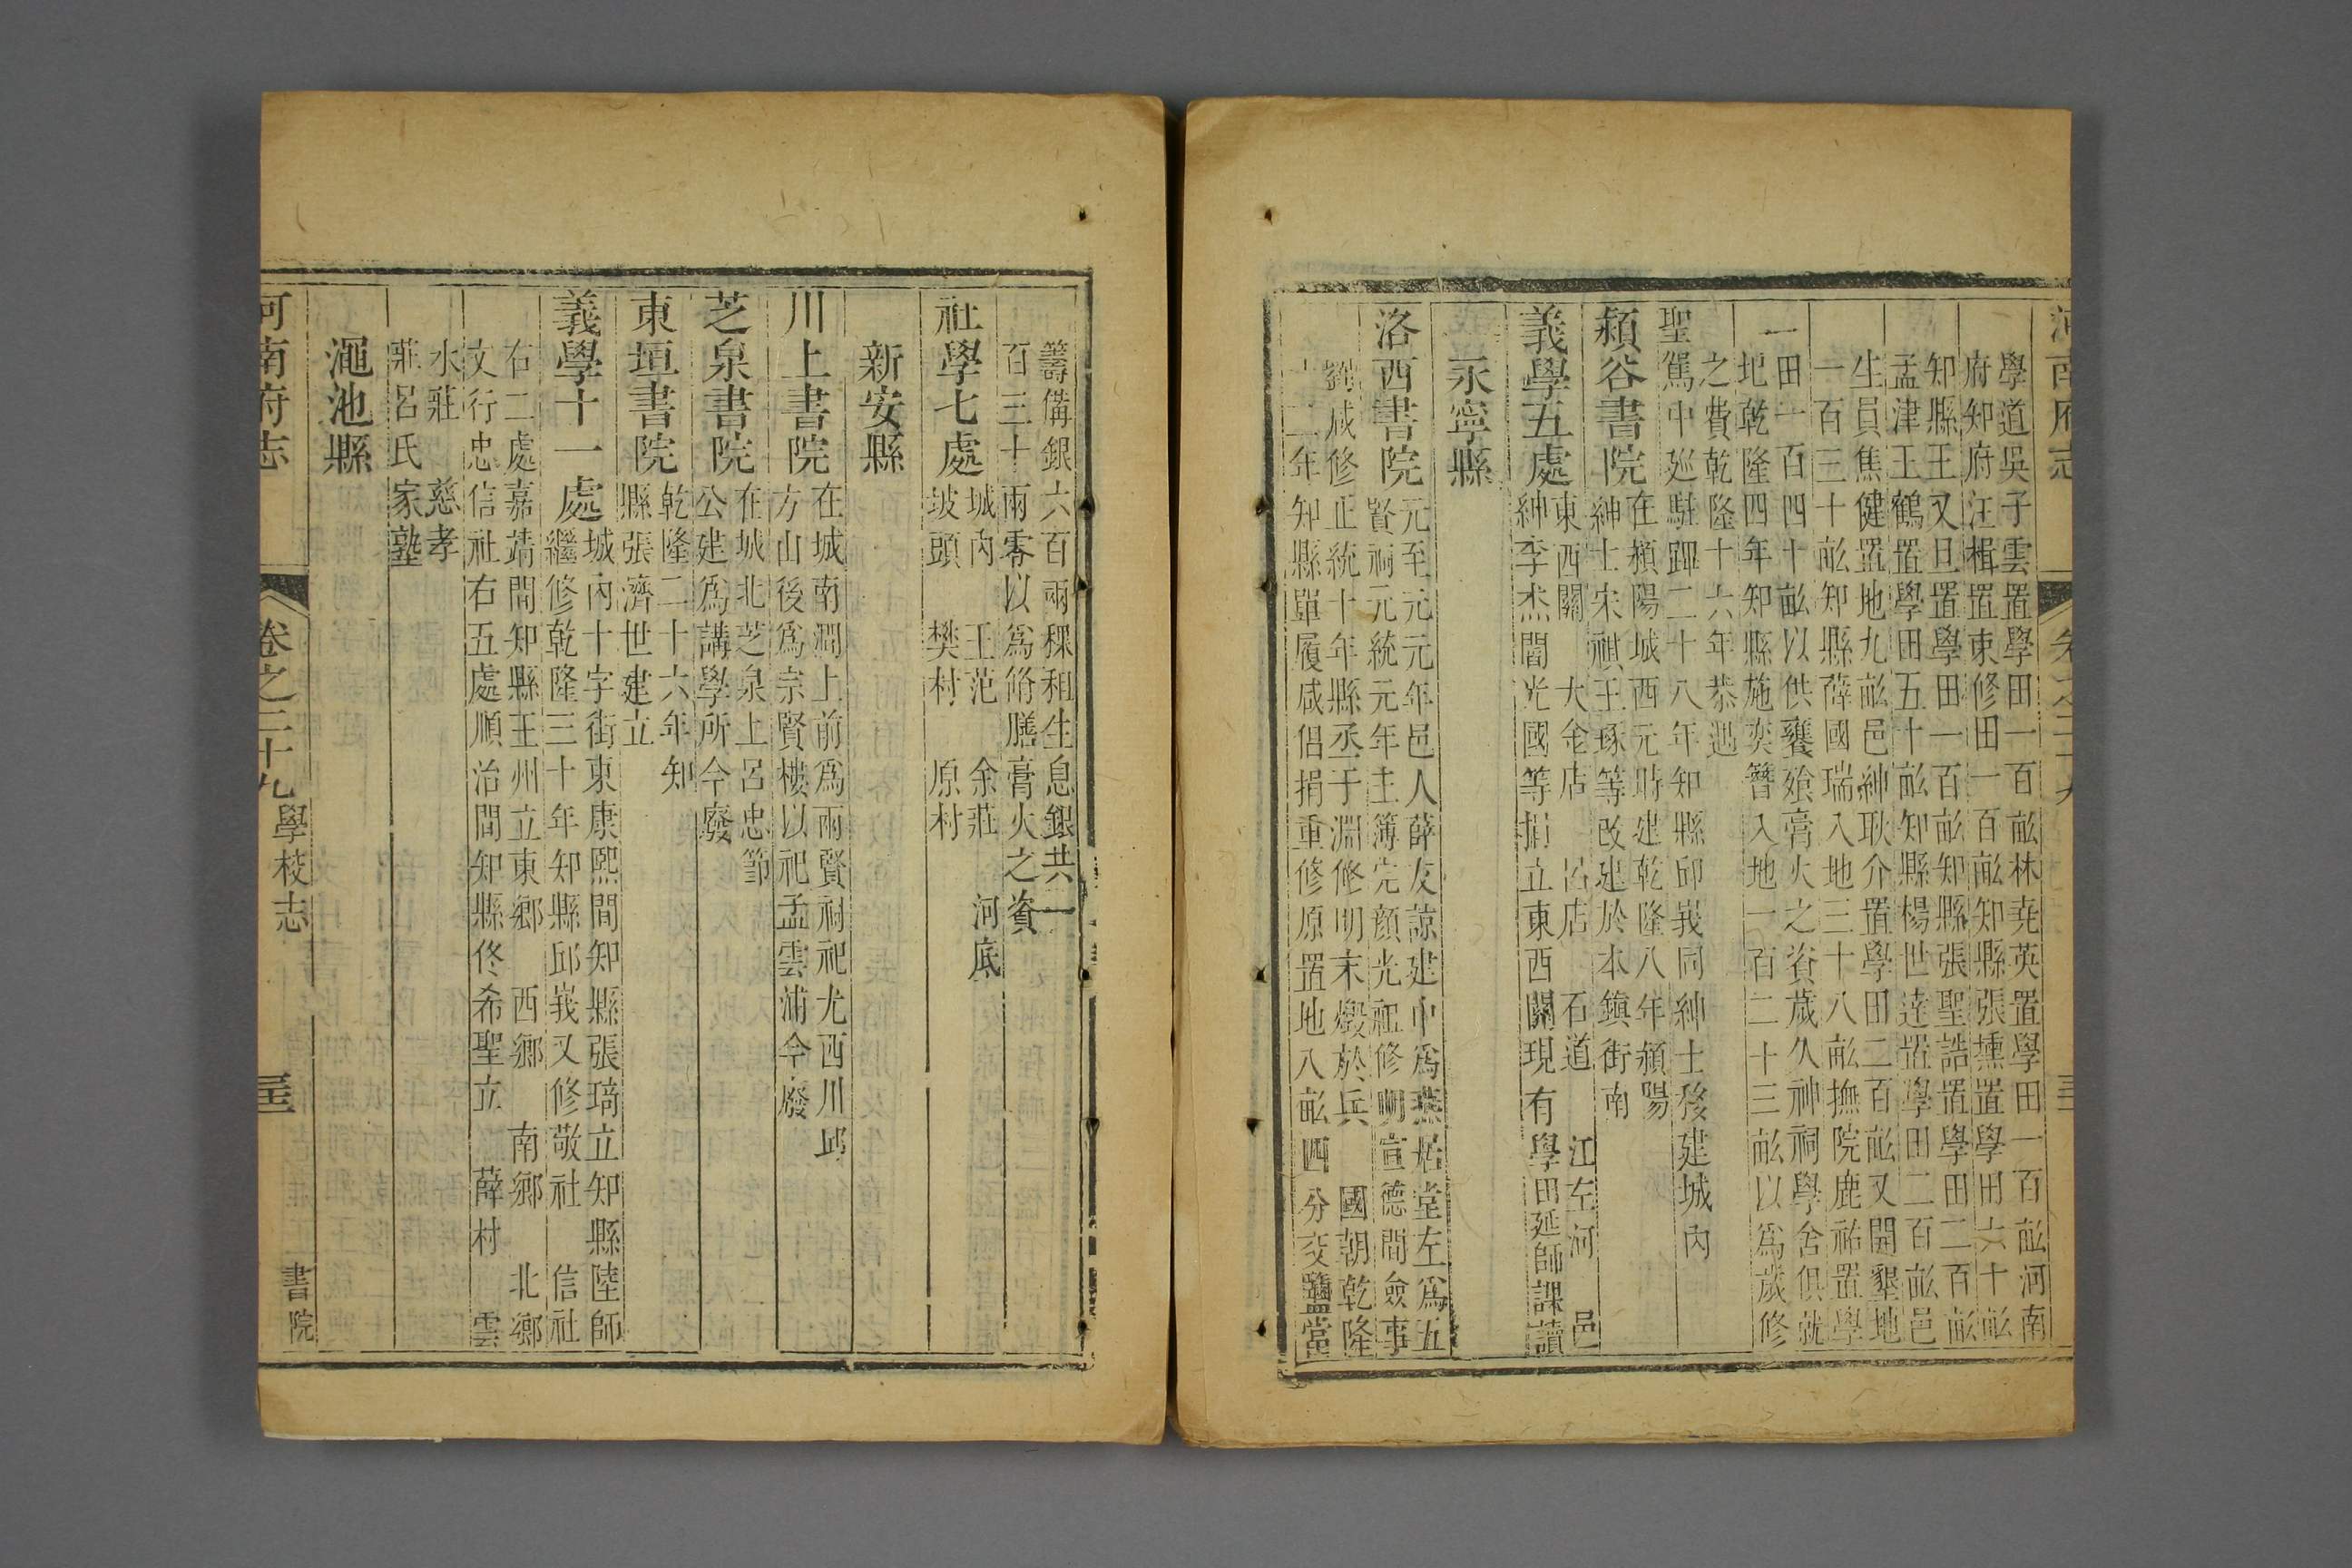 學道吳子雲置學田一百畝林堯英置學田一百畝河南
府知府汪楫置東修田一百畝知縣張壎置學田六十畝
知縣王又旦置學田一百畝知縣張聖誥置學田二百畝
孟津王鶴置學田五十畝知縣楊世達置學田二百畝邑
生員焦健置地九畝邑紳耿介置學田二百畝又開墾地
一百三十畝知縣薛國瑞入地三十八畝撫院鹿祐置學
田一百四十畝以供饔飧膏火之資歲久神祠學舍俱就
圯乾隆四年知縣施奕簪入地一百二十三畝以為歲修
之費乾隆十六年恭遇
聖駕中巡駐蹕二十八年知縣邱峩同紳士移建城內
潁谷書院
在潁陽城西元時建乾隆八年潁陽
紳士宋祺王琢等改建於本鎮街南
義學五處
東西關 大金店 呂店 石道 江左河 邑
紳李杰閻光國等捐立東西關現有學田延師課讀
永寧縣
洛西書院
元至元元年邑人薛友諒建中為燕居堂左為五
賢祠元統元年主簿完顏光祖修明宣德間僉事
劉咸修正統十年縣丞于淵修明末燬於兵 國朝乾隆
十二年知縣單履咸倡捐重修原置地八畝四分交鹽當
籌備銀六百兩稞租生息銀共一
百三十兩零以為脩膳膏火之資
社學七處
城內 王范 余莊 河底
坡頭 樊村 原村
新安縣
川上書院
在城南澗上前為兩賢祠祀尤西川邱
方山後為宗賢樓以祀孟雲浦今廢
芝泉書院
在城北芝泉上呂忠節
公建為講學所今廢
東垣書院
乾隆二十六年知
縣張濟世建立
義學十一處
城內十字街東康熙間知縣張琦立知縣陸師
繼修乾隆三十年知縣邱峩又修敬社 信社
右二處嘉靖間知縣王州立東鄉 西鄉 南鄉 北鄉
文行忠信社右五處順治間知縣佟希聖立 薛村 雲
水莊 慈孝
莊呂氏家塾
澠池縣
河南府志
卷之三十九
學校志
書院